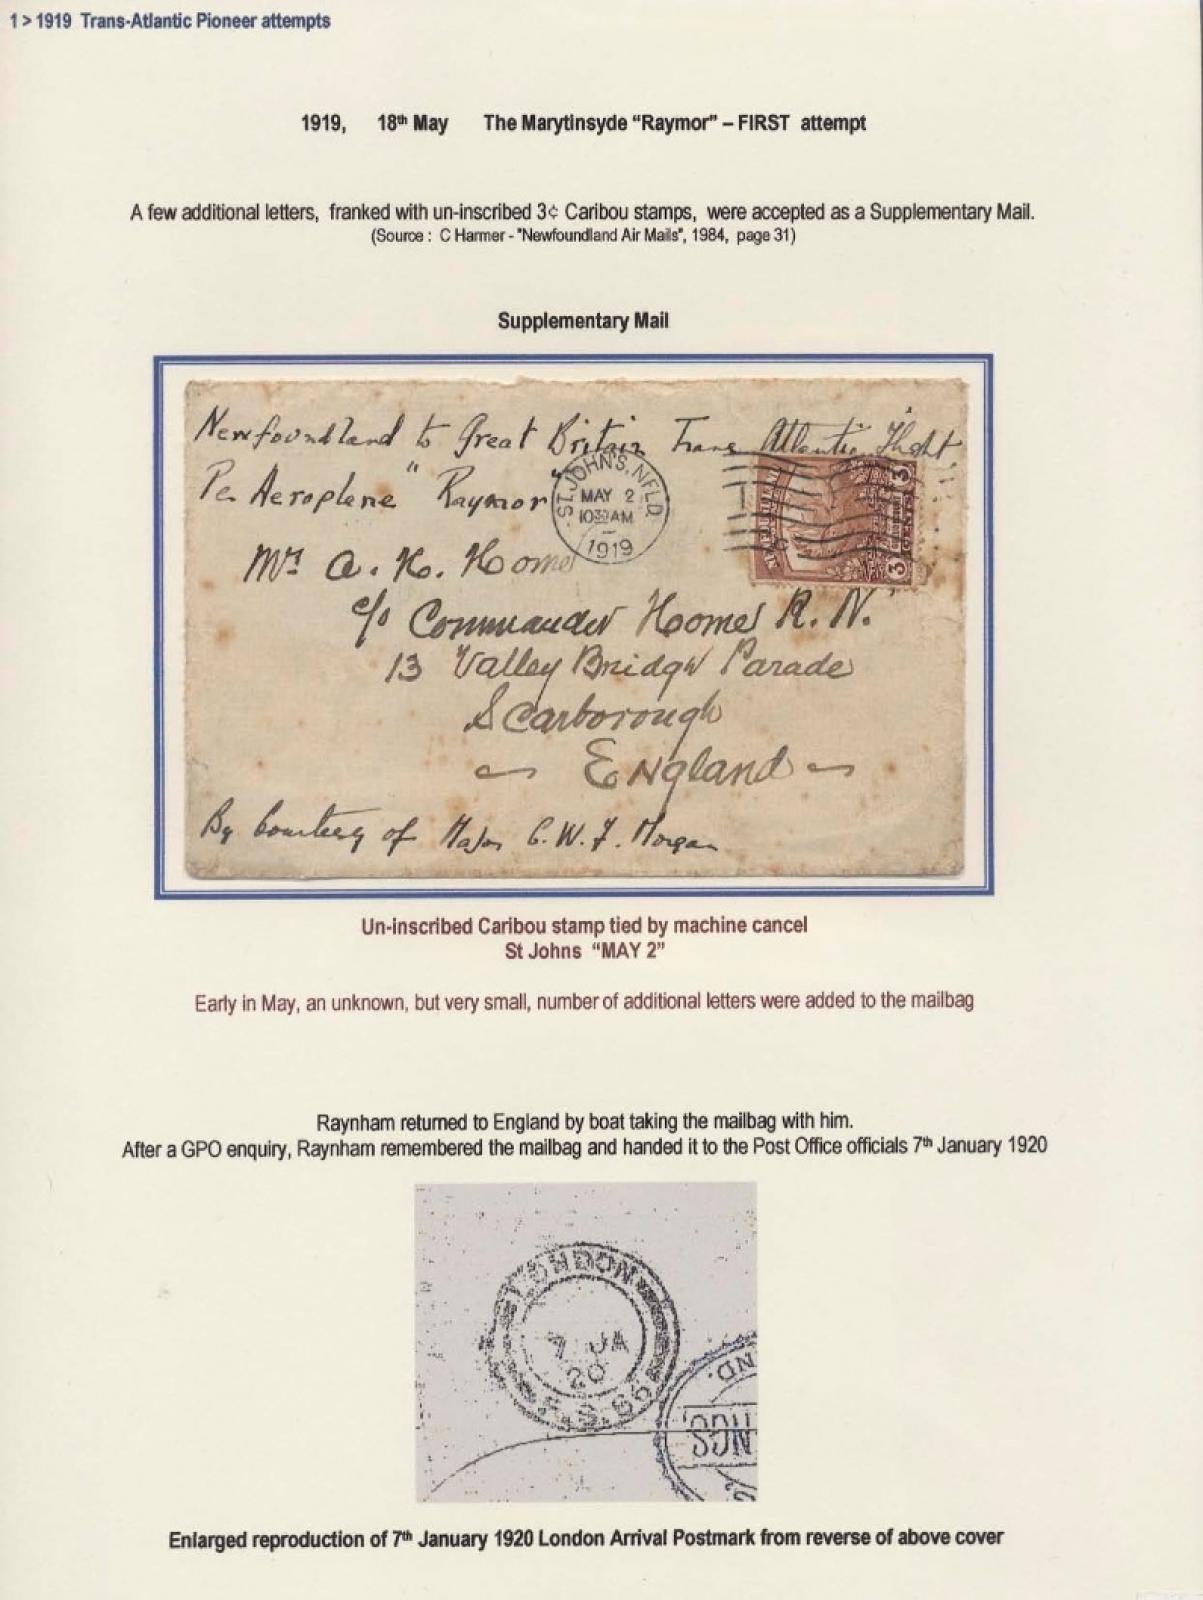 1 > 1919 Trans-Atlantic Pioneer attempts
1919, 18th May The Marytinsyde “Raymor” – FIRST attempt
A few additional letters, franked with un-inscribed 3¢ Caribou stamps, were accepted as a Supplementary Mail.
(Source : C Harmer - "Newfoundland Air Mails", 1984, page 31)
Supplementary Mail
Newfoundland to Great Britain Trans Atlantic Flight.
Per Aeroplane "Raymor"
ST. JOHN'S, NFLD.
MAY 2
1030 AM
1919
NEWFOUNDLAND
3 3
CENTS
Mrs A. K. Home
c/o Commander Home R. N.
13 Valley Bridge Parade
Scarborough
England
By Courtesy of Major C. W. F. Morgan
Un-inscribed Caribou stamp tied by machine cancel
St Johns “MAY 2”
Early in May, an unknown, but very small, number of additional letters were added to the mailbag
Raynham returned to England by boat taking the mailbag with him.
After a GPO enquiry, Raynham remembered the mailbag and handed it to the Post Office officials 7th January 1920
LONDON
7 JA
20
F.S.66
ND.
NGS
Enlarged reproduction of 7th January 1920 London Arrival Postmark from reverse of above cover